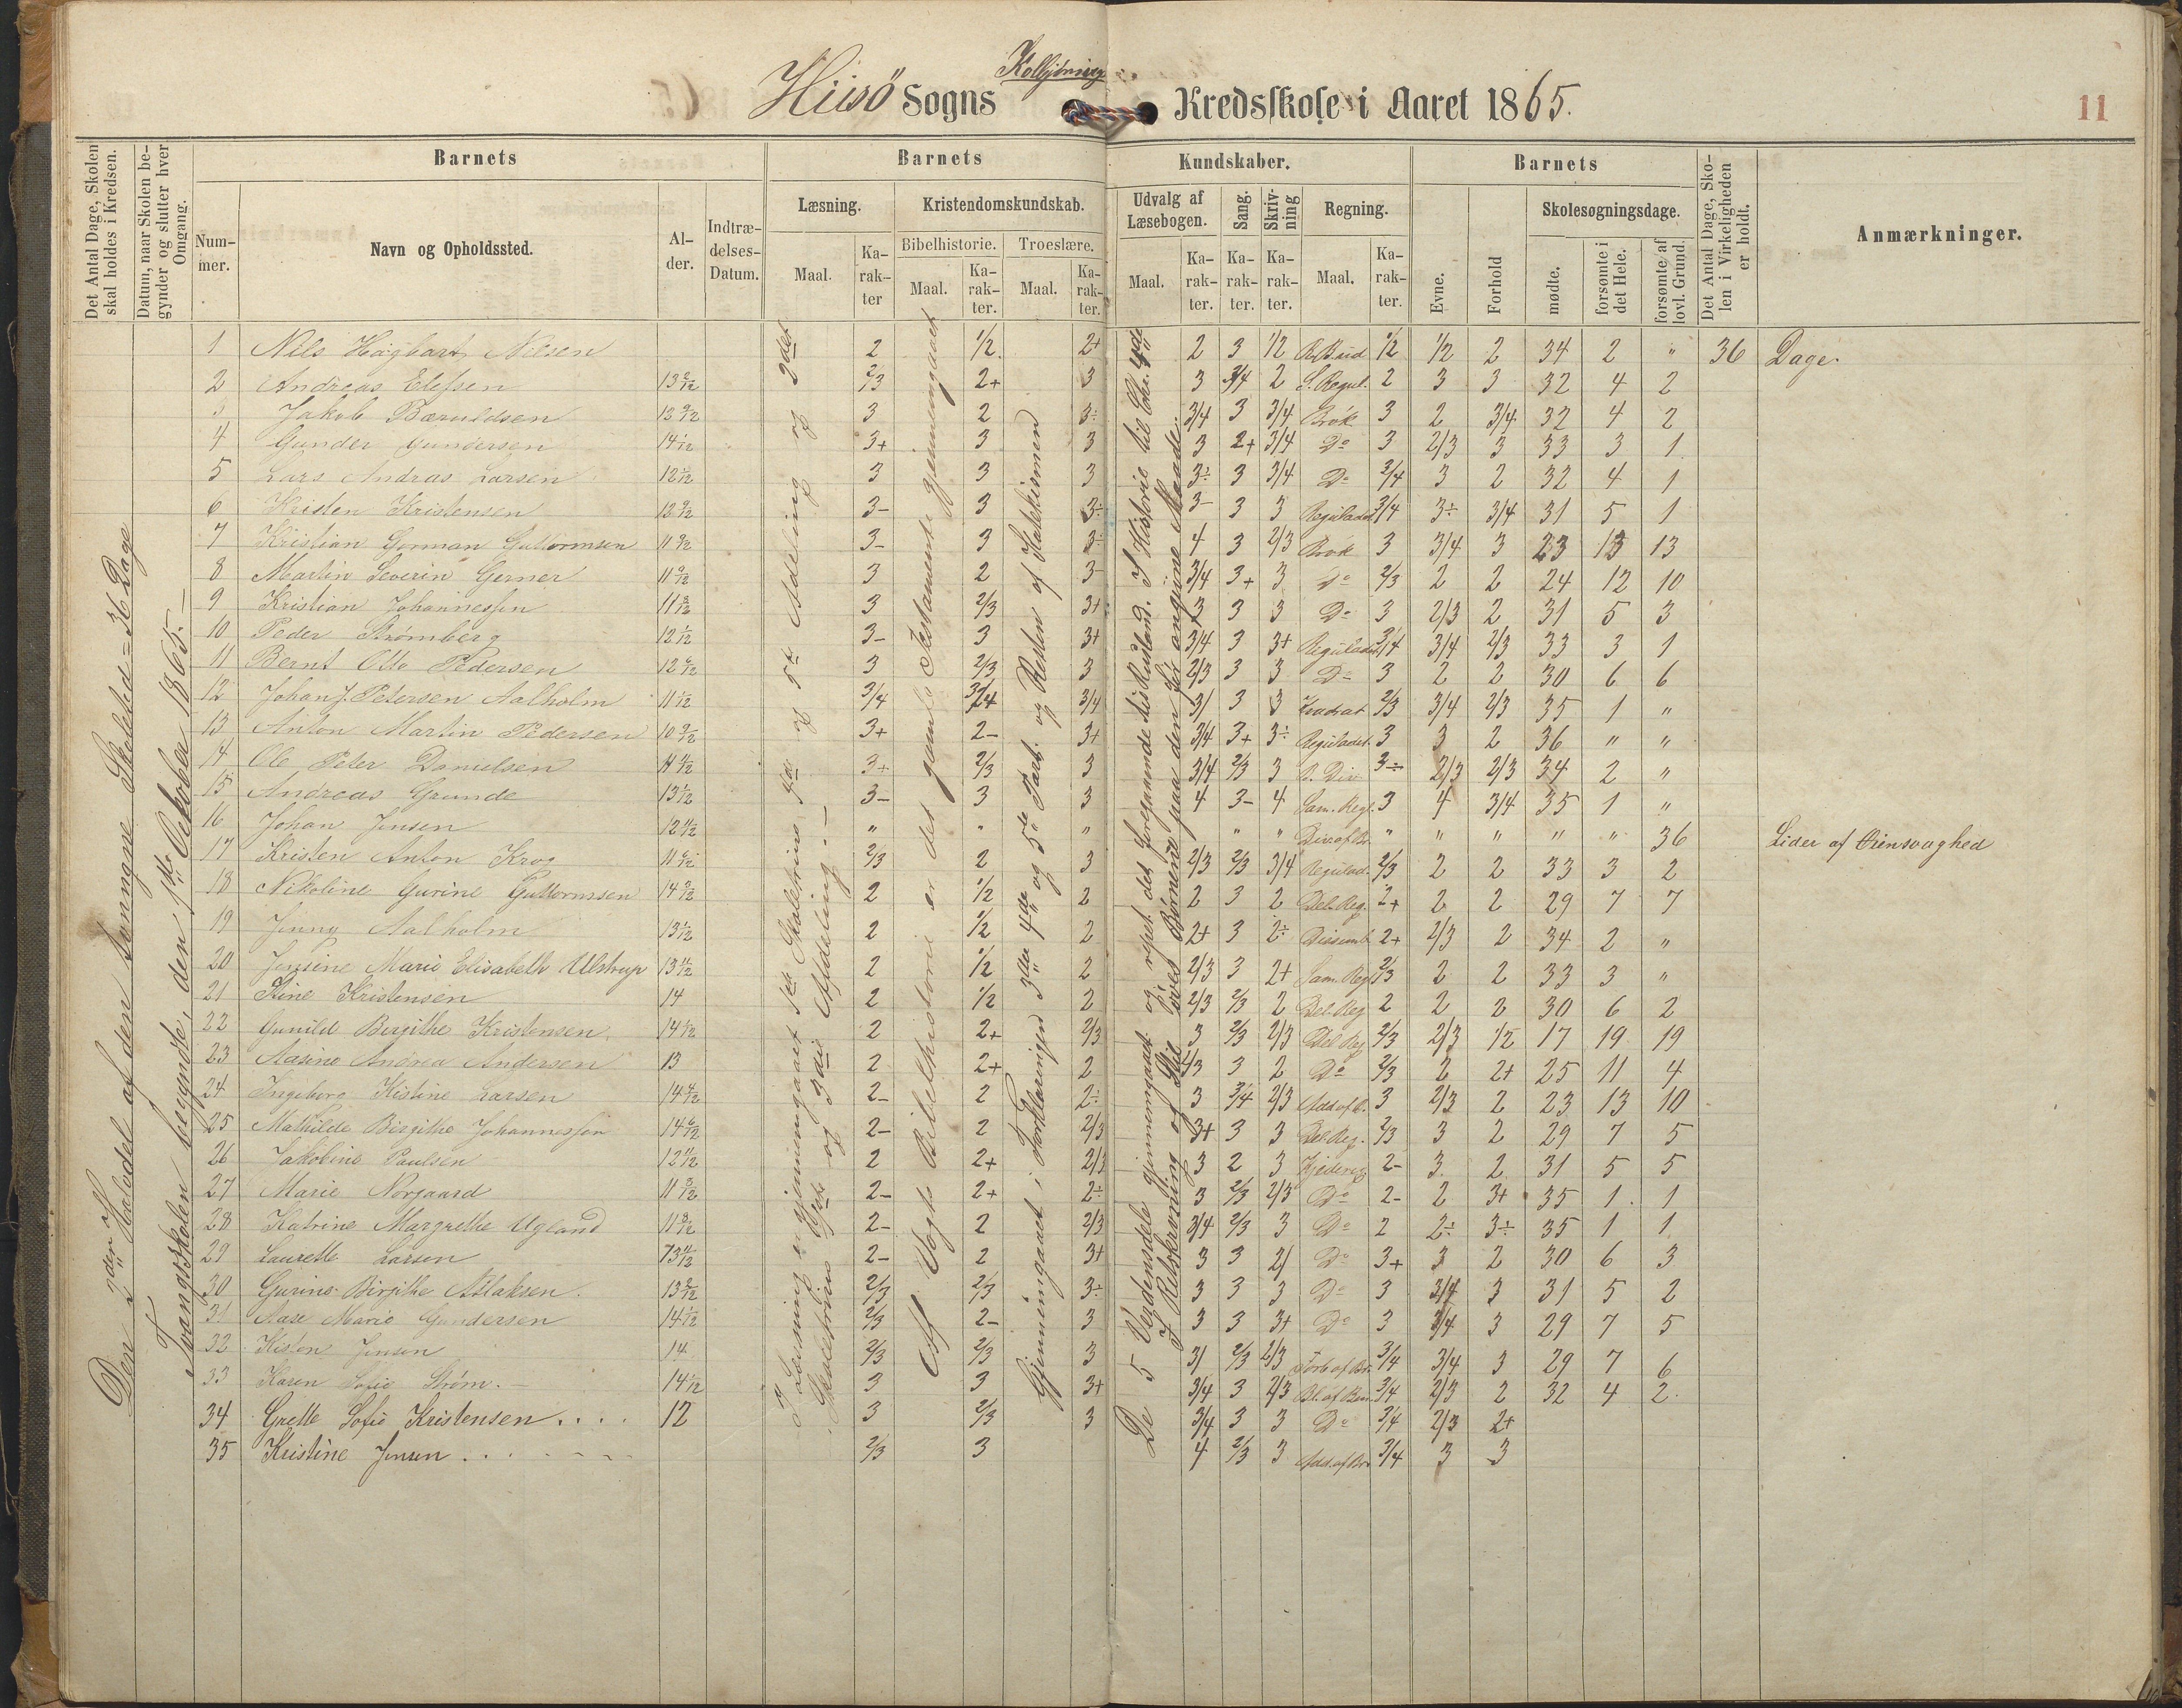 Kolbjörnsv.
Hiisö Sogns Kredsskole i Aaret 1865.
11
Det Antal Dage, Skolen skal holdes i Kredsen.
Datum, naar Skolen begynder og slutter hver Omgang.
Barnets
Nummer.
Navn og Opholdssted.
Alder.
Indtrædelses-Datum.
Barnets Kundskaber.
Læsning.
Maal.
Karakter
Kristendomskundskab.
Bibelhistorie.
Maal.
Karakter.
Troeslære.
Maal.
Karakter.
Udvalg af Læsebogen.
Maal.
Karakter.
Sang.
Karakter.
Skrivning
Karakter.
Regning.
Maal.
Karakter.
Barnets
Evne.
Forhold
Skolesøgningsdage.
mødte.
forsømte i det Hele.
forsømte af lovl. Grund.
Det Antal Dage, Skolen i Virkeligheden er holdt.
Anmærkninger.
Den 2den Halvdel af den tvungne Skoletid = 36 Dage
Tvangsskolen begyndte, den 1ste Oktober 1865. —
I Læsning er gjennemgaaet 1ste Skoletrins 4de og 5te Afdeling og 2det
Skoletrins 1ste og 3die Afdeling. —
Af Vogts Bibelhistorie er det gamle Testamente gjennemgaaet
Gjennemgaaet i Forklaringen 3die 4de og 5te Part. og Resten af Katekismen
De 5 Verdensdele gjennemgaaet og repet. det foregaaende til Rusland. I Historie til Chr. 4de
I Retskrivning og Stil øves Børnene paa den for angivne Maade.
1 Nils Hagbart Nilsen 2 1/2 2+ 2 3 1/2 R. Brud 1/2 1/2 2 34 2 " 36 Dage.
2 Andreas Elefsen 2/3 2+ 3 3 3/4 2 S. Regul. 2 3 3 32 4 2
3 Jakob Bæruldsen 3 2 3÷ 3/4 3 3/4 Brøk 3 2 3/4 32 4 2
4 Gunder Gundersen 14 1/12 3+ 3 3 3 2+ 3/4 Do 3 2/3 3 33 3 1
5 Lars Andras Larsen 3 3 3 3÷ 3 3/4 Do 3/4 3 2 32 4 1
6 Kristen Kristensen 3- 3 3÷ 3- 3 3 Reguladet. 3/4 3÷ 3/4 31 5 1
7 Kristian Gorman Guttormsen 3- 3 3÷ 4 3 2/3 Brøk 3 3/4 3 23 13 13
8 Martin Severin Gerner 3 2 3- 3/4 3+ 3 Do 2/3 2 2 24 12 10
9 Kristian Johannessen 3 2/3 3+ 3 3 3 Do 3 2/3 2 31 5 3
10 Peder Strømberg 12 1/12 3- 3 3+ 3/4 3 3+ Reguladet 3/4 3/4 2/3 33 3 1
11 Bernt Otto Pedersen 3 2/3 3 2/3 3 3 Do 3 2 2 30 6 6
12 Johan J. Petersen Aalholm 3/4 3/4 3/4 3/ 3 3 Kvadrat 2/3 3/4 2/3 35 1 "
13 Anton Martin Pedersen 3+ 2- 3+ 3/4 3+ 3÷ Reguladet. 3 3 2 36 " "
14 Ole Peter Danielsen 3+ 2/3 3 3/4 2/3 3 S. Div. 3÷ 2/3 2/3 34 2 "
15 Andreas Grunde 3- 3 3 4 3- 4 Sam. Regl. 3 4 3/4 35 1 "
16 Johan Jensen " " " " " Div. af Br. " " " " " 36 Lider af Øiensvaghed
17 Kristen Anton Krog 2/3 2 3 2/3 2/3 3/4 Regulad. 2/3 2 2 33 3 2
18 Nikoline Gurine Guttormsen 2 1/2 2 2 3 2 Del. Reg. 2+ 2 2 29 7 7
19 Jenny Aalholm 13 1/12 2 1/2 2 2+ 3 2÷ 2+ 2/3 2 34 2 "
20 Jensine Marie Elisabeth Ulstrup 2 1/2 2 2/3 3 2+ Sam. Reg. 2/3 2 2 33 3 "
21 Stine Kristensen 14 2 1/2 2 2/3 2/3 2 Del. Reg. 2 2 2 30 6 2
22 Gunild Birgithe Kristensen. 2 2+ 2/3 3 2/3 2/3 Del. Reg. 2/3 2/3 1/2 17 19 19
23 Aasine Andrea Andersen 13 2 2+ 2 2/3 3 2 Do 2/3 2 2+ 25 11 4
24 Ingeborg Kistine Larsen 14 4/12 2- 2 2÷ 3 3/4 2/3 Add. af B. 3 2/3 2 23 13 10
25 Mathilde Birgithe Johannessen 14 6/12 2- 2 2/3 3+ 3 3 Del. Reg. 2/3 3 2 29 7 5
26 Jakobine Paulsen 2 2+ 2/3 3 2 3 Kjedereg. 2- 3 2 31 5 5
27 Marie Norgaard 2- 2+ 2÷ 3 2/3 2/3 Do 2- 2 3+ 35 1 1
28 Katrine Margrethe Ugland 2- 2 2/3 3/4 2/3 3 Do 2 2÷ 3÷ 35 1 1
29 Laurette Larsen 2- 2 3+ 3 3 2/ Do 3+ 3 2 30 6 3
30 Gurine Birgithe Aslaksen. 2/3 2/3 3÷ 3 3 3 Do 3 3/4 3 31 5 2
31 Aase Marie Gundersen 14 1/12 2/3 2- 3 3 3 3+ Do 3 3/4 3 29 7 5
32 Kisten Jensen 14 2/3 2/3 3 3/ 2/3 2/3 Forb. af Br. 3/4 3/4 3 29 7 6
33 Karen Sofie Strøm. — 14 1/12 3 3 3+ 3/4 3 2/3 3/4 2/3 2 32 4 2.
34 Grette Sofie Kristensen . . . . 12 3 2/3 3 3/4 3 3 Do 3/4 2/3 2+
35 Kristine Jensen . . . - - - 2/3 3 4 2/3 3 Add. af Br. 3/4 3 3